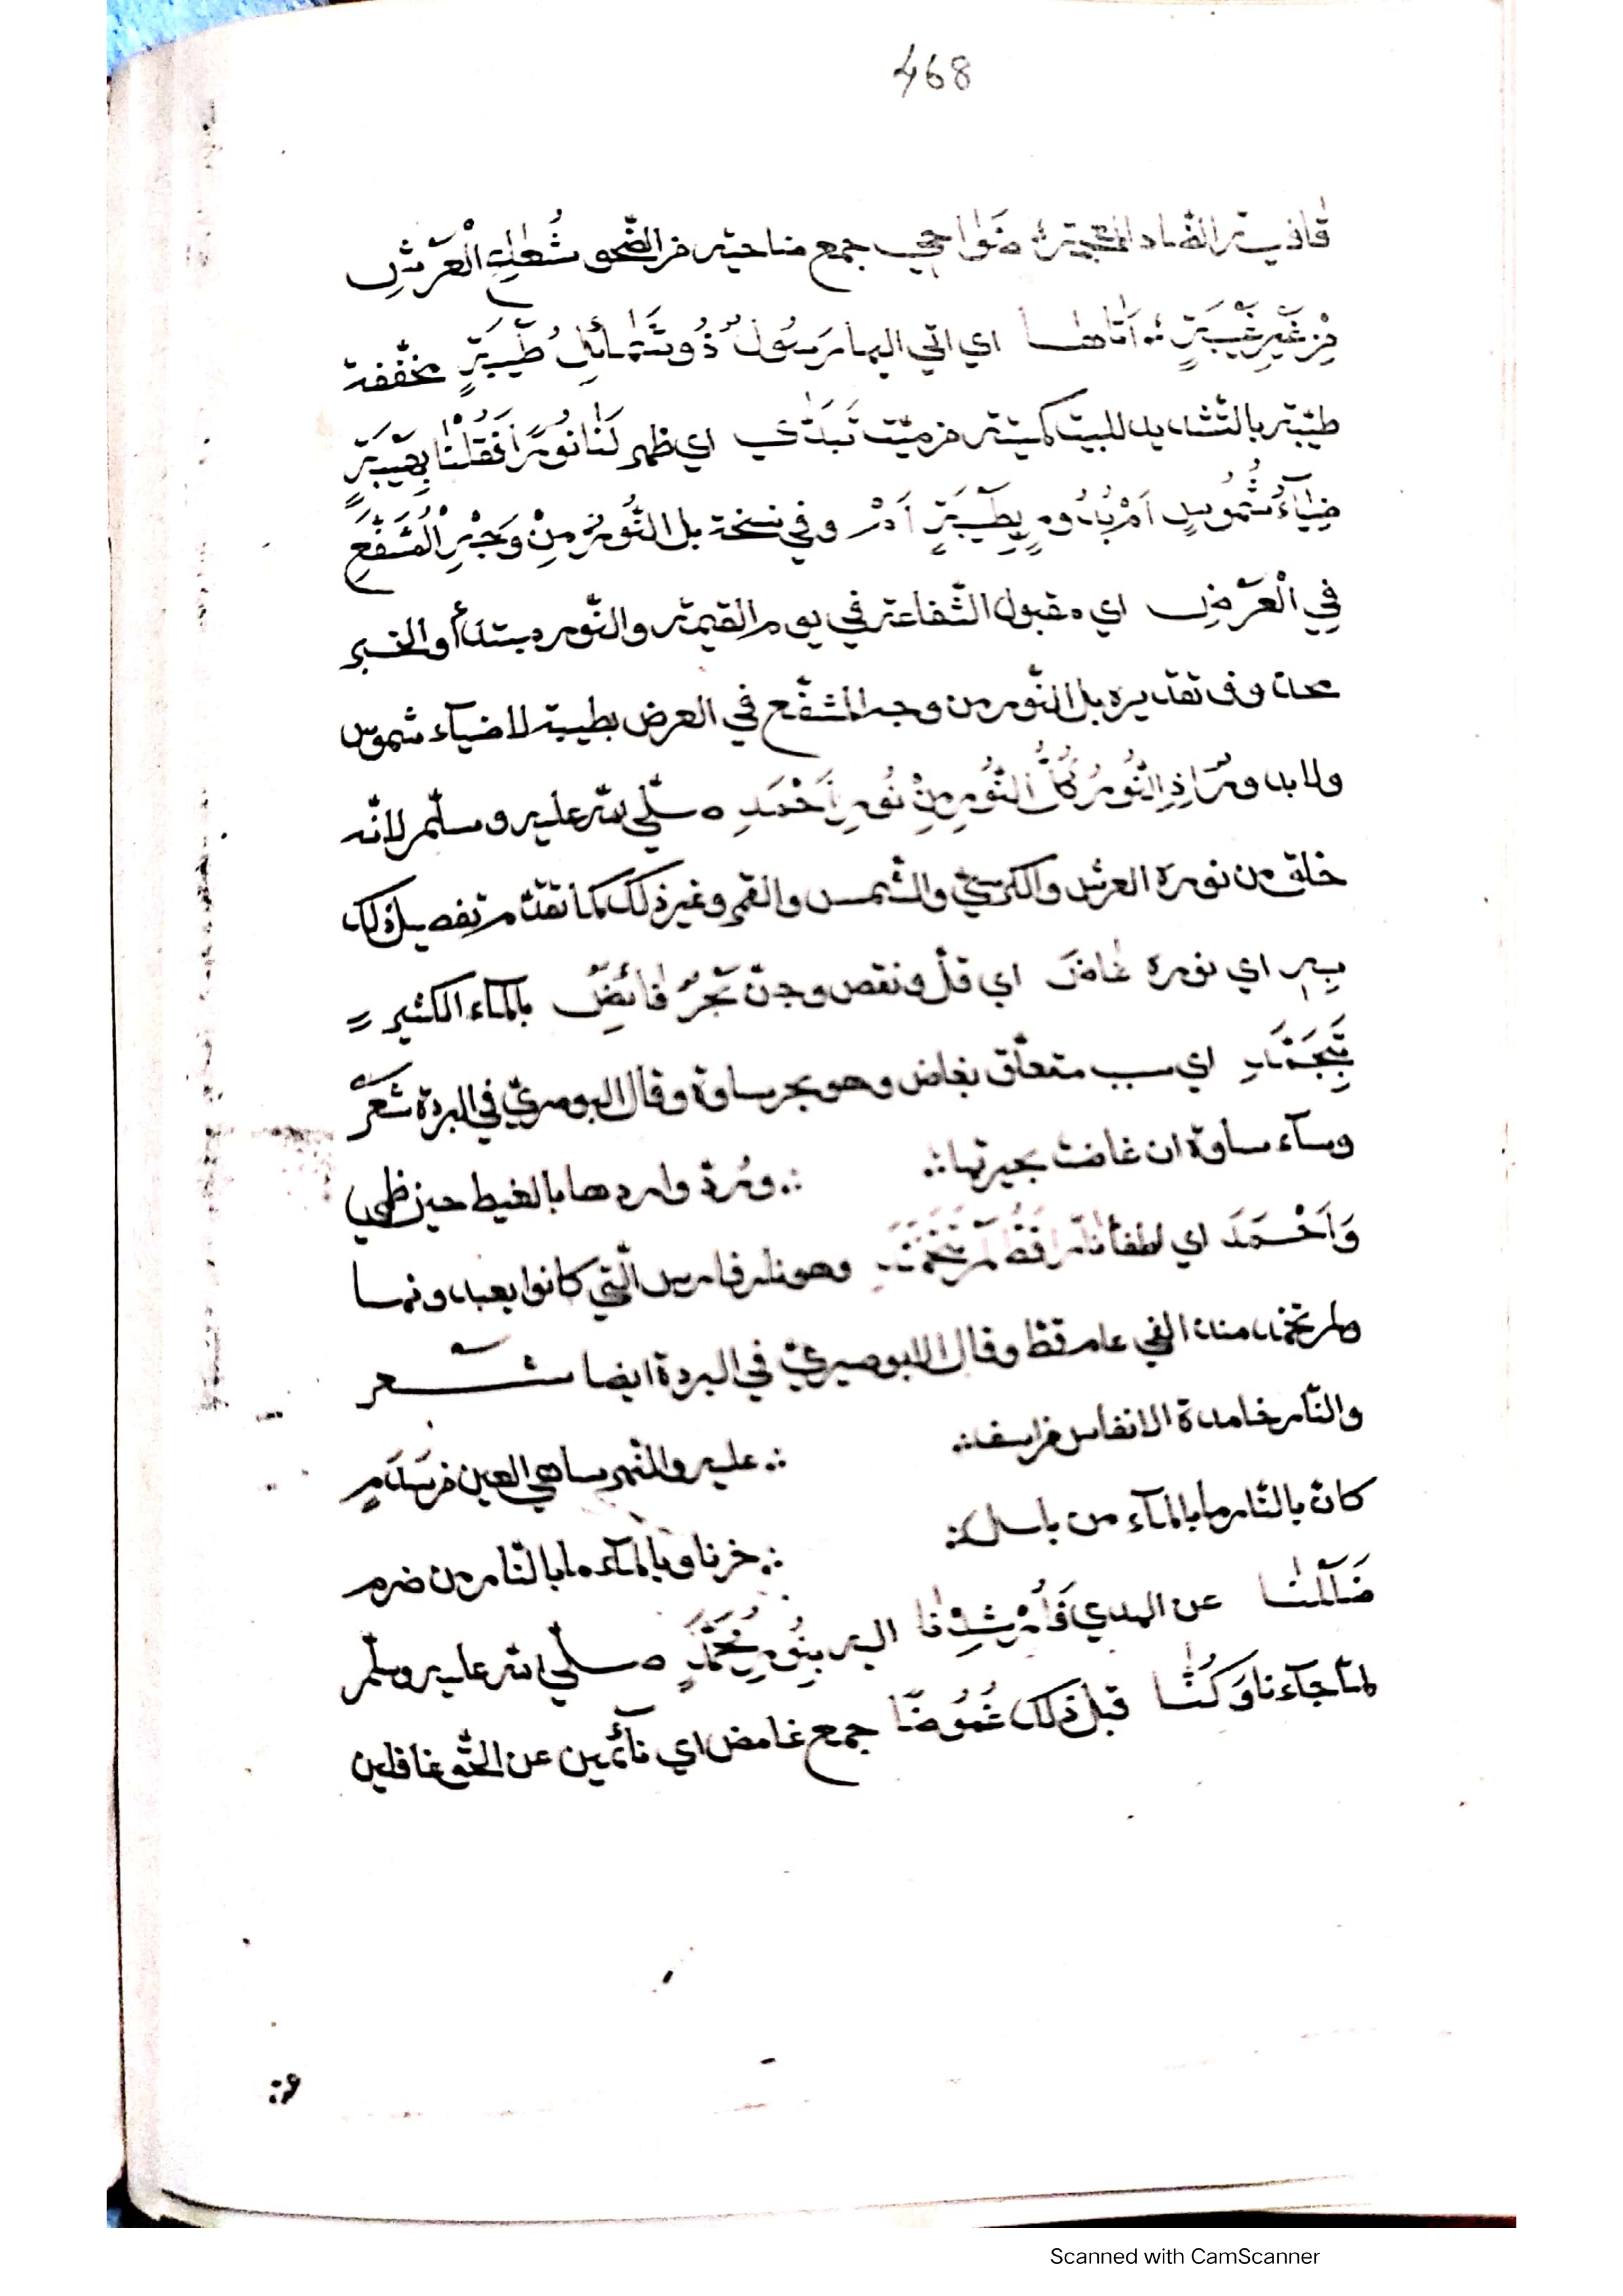 468
قافية الضاد المعجمة ضَوَاحِي جمع ضاحية من الضحو شُعَاعِ الْعَرْشِ
مِنْ غَيْرِ غَيْبَةٍ ؞ اَتَاهَا اي اتي اليها رَسُولٌ ذُو شَمَائِلِ طَيْبَةٍ مخففة
طيّبة بالتّشديد للبيت كميتة من ميّت تَبَدّٰي اي ظهر لَنَا نُورًا فَقُلْنَا بِهَيْبَةٍ
ضِيَآءُ شُمُوسٍ اَمْ بُدُورٍ بِطَيْبَةٍ اَمْ وفي نسخة بل النُّورُ مِنْ وَجْهِ الْمُشَفَّعِ
فِي الْعَرْضِ اي مقبول الشّفاعة في يوم القيمة والنّور مبتدأ والخبر
محذوف تقديره بل النّور من وجه المشفّع في العرض بطيبة لا ضياء شموس
ولا بدور اِذِ النُّورُ كُلُّ النُّورِ مِنْ نُورِ اَحْمَدِ صلّي الله عليه وسلّم لانّه
خلق من نوره العرش والكرسيّ والشّمس والقمر وغير ذلك كما تقدّم تفصيل ذلك
بِهِ اي نوره غَاضَ اي قلّ ونقص وجفّ بَحْرٌ فَائِضٌ بالمآء الكثير
اي سبب متعلّق بغاض وهو بحر ساوة وقال البوصريّ في البردة شعر
وسآء ساوة ان غاضت بحيرتها ؞ ؞ وردّ واردها بالغيظ حين ظمي
وَاَخْمَدَ اي اطفأ نَارًا قَطُّ لَمْ وهو نار فارس الّتي كانوا يعبدونها
ولم تخمد منذ الفي عام قطّ وقال الابوصيريّ في البردة ايضا شعر
والنّار خامدة الانفاس من اسف ؞ ؞ عليه والنّهر ساهي العين من سَدَمٍ
كانّ بالنّار ما بالمآء من بلل ؞ ؞ حزنا وبالمآء ما بالنّار من ضرم
ضَلَلْنَا عن الهدي فَاَرْشِدْنَا اليه بِنُورِ مُحَمَّدٍ صلّي الله عليه وسلّم
لمّا جآءنا وَكُنَّا قبل ذلك غُمُوضًا جمع غامض اي نآئمين عن الحقّ غافلين
Scanned with CamScanner